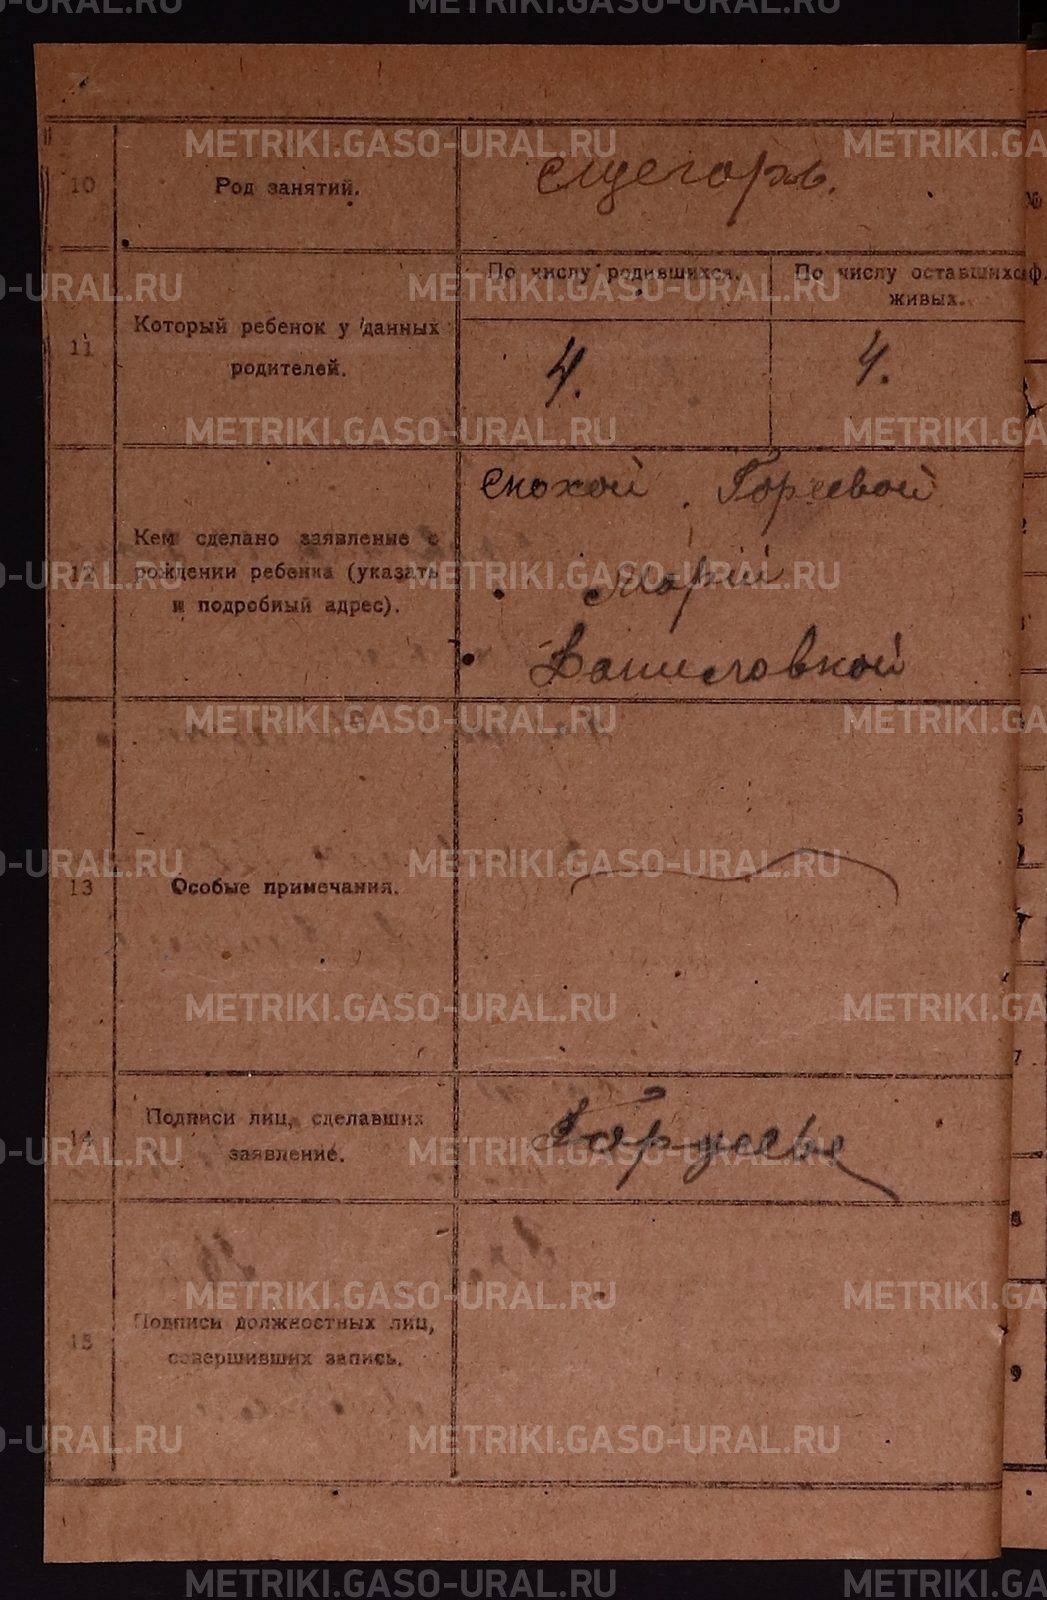 METRIKI.GASO-URAL.RU
10
Род занятий.
11
Который ребенок у данных
родителей.
По числу родившихся.
По числу оставшихся
живых.
4.
4.
12
Кем сделано заявление о
рождении ребенка (указать
и подробный адрес).
Снохой
Марій
Даниловной
13
Особые примечания.
14
Подписи лиц, сделавших
заявление.
15
Подписи должностных лиц,
совершивших запись.
№
7
8
9